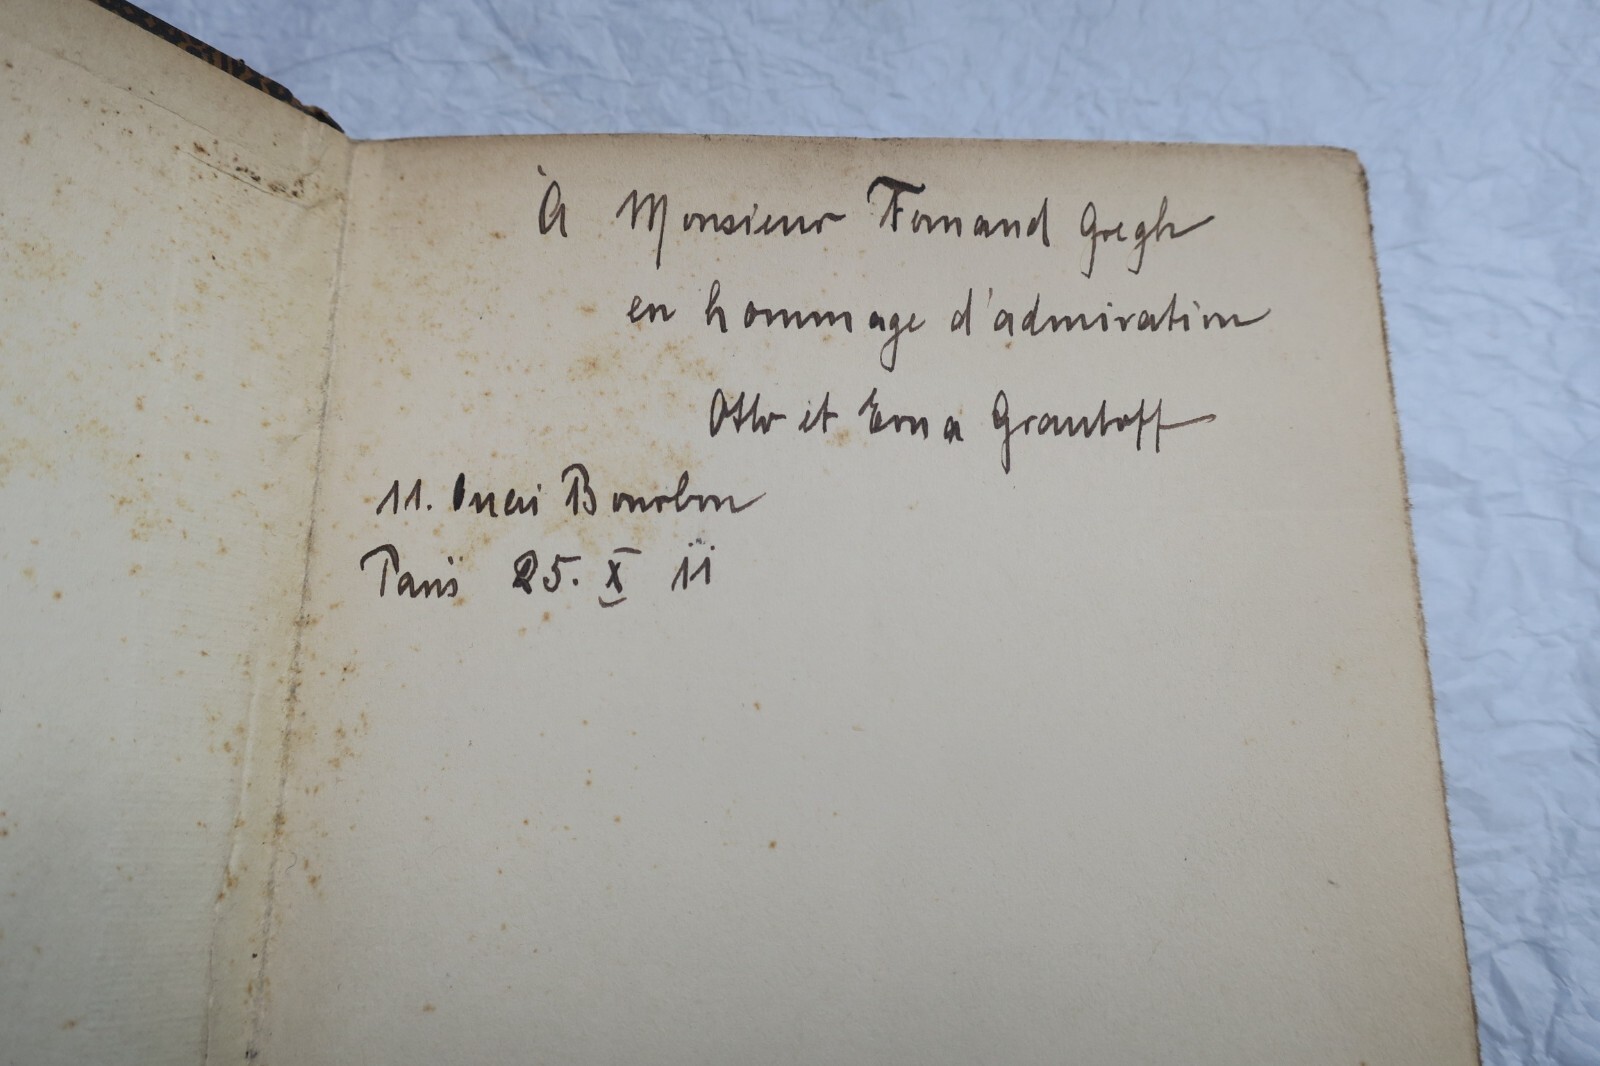 À Monsieur Fernand Gregh
en hommage d'admiration
Otto et Erna Grautoff
11. Quai Bourbon
Paris 25. X 11